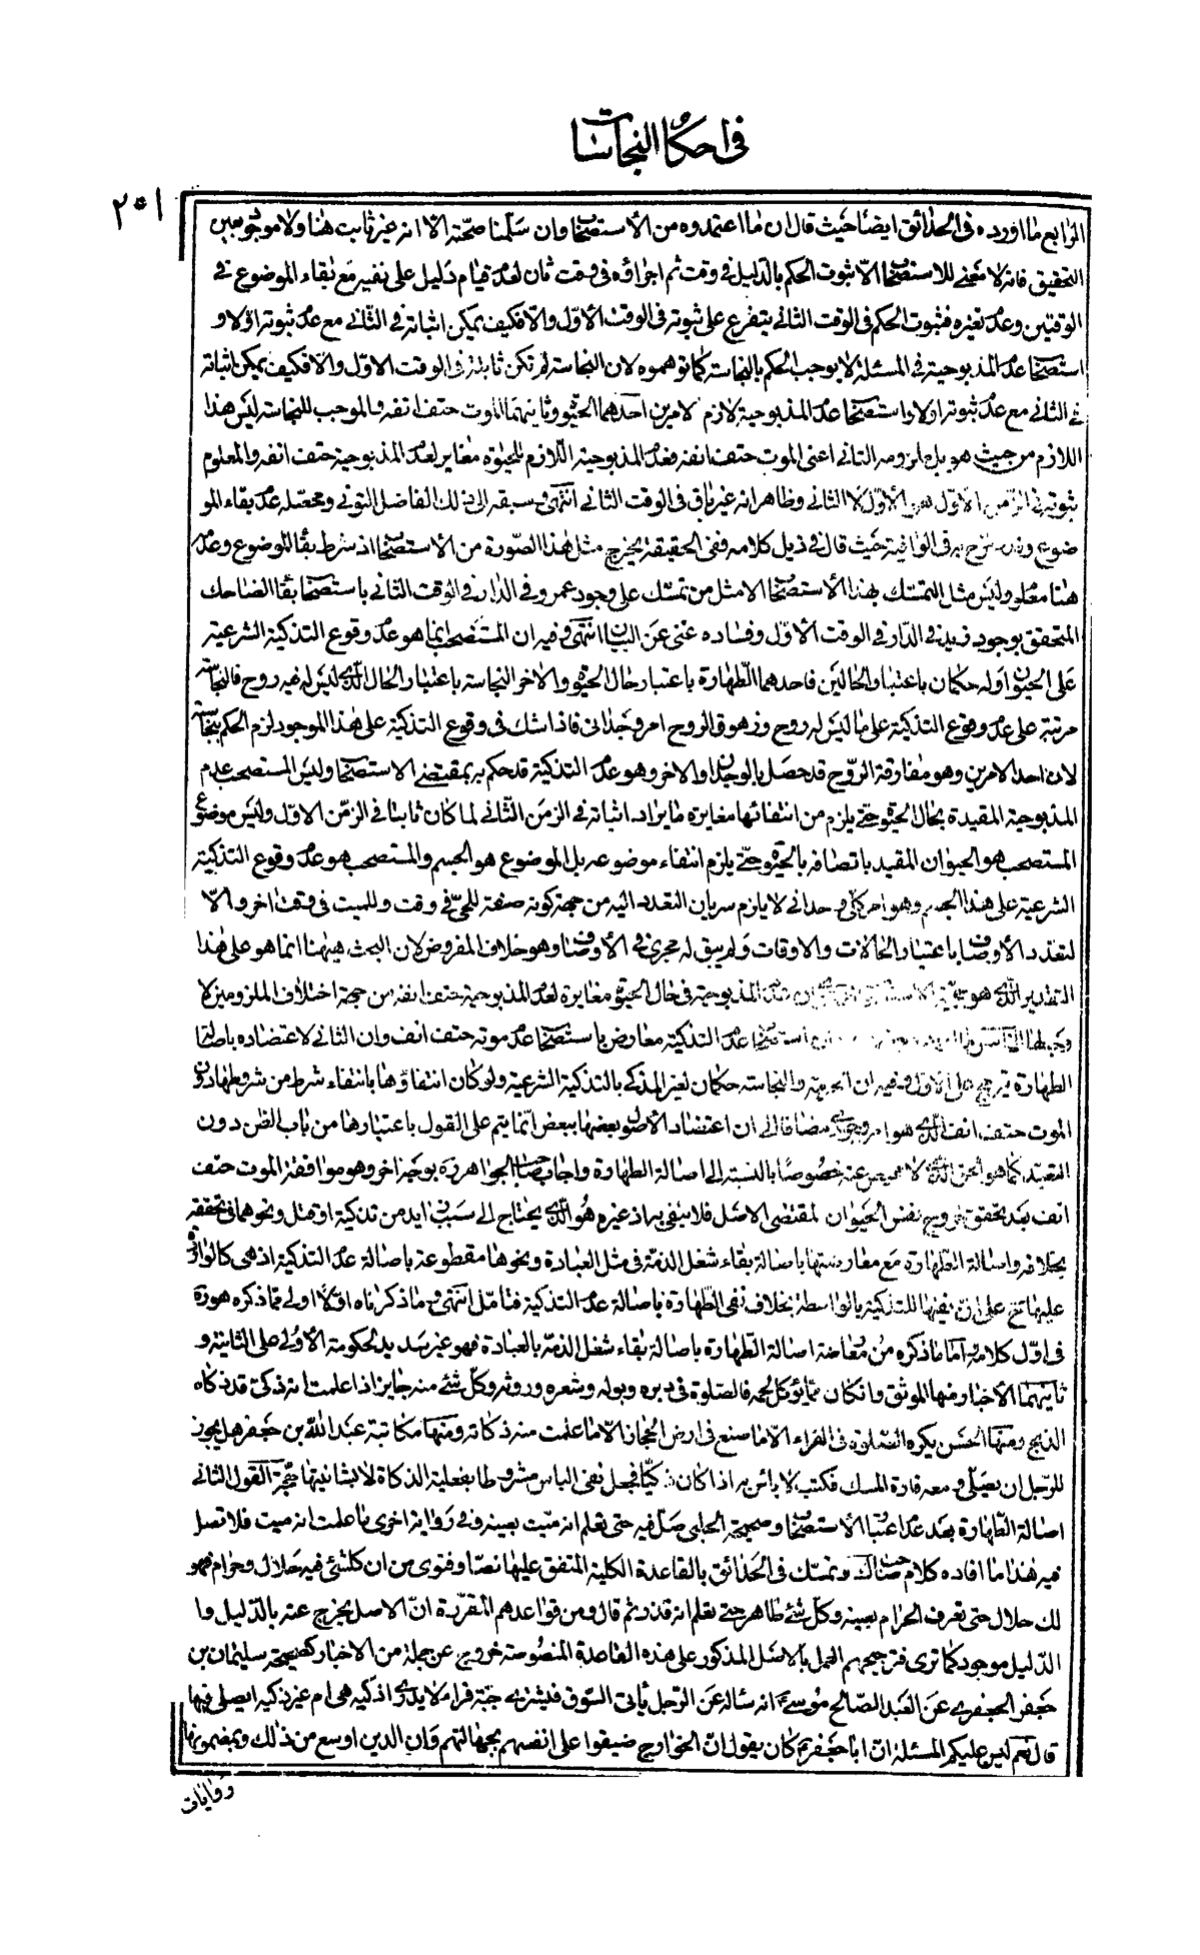 في احكام النجاسات
٢٥١
الرابع ما اورده في الحدائق ايضا حيث قال ان ما اعتمدوه من الاستصحاب وان سلمنا صحته الا انه غير ثابت هنا ولا موجود
التحقيق فانه لا معنى للاستصحاب الا ثبوت الحكم بالدليل في وقت ثم اجراؤه في وقت ثان لعدم قيام دليل على نفيه مع بقاء الموضوع في
الوقتين وعدم تغيره فثبوت الحكم في الوقت الثاني يتفرع على ثبوته في الوقت الاول والا فكيف يمكن اثباته في الثاني مع عدم ثبوته اولا و
استصحاب عدم المذبوحية في المسئلة لا يوجب الحكم بالنجاسة كما توهموه لان النجاسة لم تكن ثابتة في الوقت الاول والا فكيف يمكن اثباته
في الثاني مع عدم ثبوته اولا واستصحاب عدم المذبوحية لازم لامرين احدهما الحيوة وثانيهما الموت حتف انفه والموجب للنجاسة ليس هذا
اللازم من حيث هو بل ملزومه الثاني اعنى الموت حتف انفه فعدم المذبوحية اللازم للحيوة مغاير لعدم المذبوحية حتف انفه والمعلوم
ثبوته في الزمن الاول هو الاول لا الثاني وظاهر انه غير باق في الوقت الثاني انتهى وسبقه الى ذلك الفاضل التوني ومحصله عدم بقاء المو
ضوع في الوافية حيث قال في ذيل كلامه ففي الحقيقة يخرج مثل هذا الصورة من الاستصحاب اذ شرط بقاء الموضوع وعدمه
هنا معلوم وليس مثل المتمسك بهذا الاستصحاب الا مثل من تمسك على وجود عمرو في الدار في الوقت الثاني باستصحاب بقاء الضاحك
المتحقق بوجود زيد في الدار في الوقت الاول وفساده غنى عن البيان انتهى وفيه ان المستصحب انما هو عدم وقوع التذكية الشرعية
على الحيوان وله حكمان باعتبار الحالين فاحدهما الطهارة باعتبار حال الحيوة والاخر النجاسة باعتبار الحال الذى ليس له فيه روح فالنجاسة
مرتبة على عدم وقوع التذكية على ما ليس له روح وزهوق الروح امر وجداني فاذا شك في وقوع التذكية على هذا الموجود لزم الحكم بنجاسته
لان احد الامرين وهو مفارقة الروح قد حصل بالوجدان والاخر وهو عدم التذكية قد حكم به بمقتضى الاستصحاب وليس المستصحب عدم
المذبوحية المقيدة بحال الحيوة حتى يلزم من انتفائها مغايرة ما يراد اثباته في الزمن الثاني لما كان ثابتا في الزمن الاول وليس موضوع
المستصحب هو الحيوان المقيد باتصافه بالحيوة حتى يلزم انتفاء موضوعه بل الموضوع هو الجسم والمستصحب هو عدم وقوع التذكية
الشرعية على هذا الجسم وهو امر كلي وحداني لا يلزم سريان التعدد اليه من جهة كونه صفة للحي في وقت وللميت في وقت اخر والا
لتعدد الأوصاف باعتبار الحالات والاوقات ولم يبق له مجرى في الأوصاف وهو خلاف المفروض لان البحث هيهنا انما هو على هذا
التقدير الذى هو المذبوحية في حال الحيوة مغايرة لعدم المذبوحية حتف انفه من جهة اختلاف الملزومين لا
استصحاب عدم التذكية معارض باستصحاب عدم موته حتف انفه وان الثاني لاعتضاده باصالة
الطهارة يترجح على الاول وفيه ان الحرمة والنجاسة حكمان لغير المذكى بالتذكية الشرعية ولو كان انتفاؤها بانتفاء شرط من شروطها دون
الموت حتف انفه الذى هو امر وجودى مضافا الى ان اعتضاد الاصول بعضها ببعض انما يتم على القول باعتبارها من باب الظن دون
التعبد كما هو الحق الذى لا محيص عنه خصوصا بالنسبة الى اصالة الطهارة واجاب صاحب الجواهر ره بوجه اخر وهو موافقة الموت حتف
انفه بعد تحقق خروج نفس الحيوان لمقتضى الاصل فلا ينفى به اذ غيره هو الذى يحتاج الى سبب زايد من تذكية او قتل ونحوهما في تحققه
بخلافه واصالة الطهارة مع معارضتها باصالة بقاء شغل الذمة في مثل العبادة ونحوها مقطوعة باصالة عدم التذكية اذ هي كالوارد
عليها حتى على ان نفيها للتذكية بالواسطة بخلاف نفى الطهارة باصالة عدم التذكية فتامل انتهى وما ذكرناه اولا اولى مما ذكره هو ره
في اول كلامه اما ما ذكره من معارضة اصالة الطهارة باصالة بقاء شغل الذمة بالعبادة فهو غير سديد لحكومة الأولى على الثانية و
ثانيهما الأخبار منها الموثق وان كان مما يؤكل لحمه فالصلوة في وبره وبوله وشعره وروثه وكل شئ منه جايز اذا علمت انه ذكى قد ذكاه
الذبح ومنها الحسن يكره الصلوة في الفراء الا ما صنع في ارض الحجاز الا ما علمت منه ذكاته ومنها مكاتبة عبد الله بن جعفر هل يجوز
للرجل ان يصلى ومعه فارة المسك فكتب لا بأس به اذا كان ذكيا فجعل نفى الباس مشروطا بفعلية الذكاة لا بشانيتها حجة القول الثاني
اصالة الطهارة بعد عدم اعتبار الاستصحاب وصحيحة الحلبى صل فيه حتى تعلم انه ميت بعينه وفي رواية اخرى ما علمت انه ميت فلا تصل
فيه هذا ما افاده كلام صاحب لك وتمسك في الحدائق بالقاعدة الكلية المتفق عليها نصا وفتوى من ان كل شئ فيه حلال وحرام فهو
لك حلال حتى تعرف الحرام بعينه وكل شئ طاهر حتى تعلم انه قذر ثم قال ومن قواعدهم المقررة ان الاصل يخرج عنه بالدليل وا
الدليل موجود كما ترى فترجيحهم العمل بالاصل المذكور على هذه القاعدة المنصوصة خروج عن جملة من الاخبار كصحيحة سليمان بن
جعفر الجعفرى عن العبد الصالح موسى انه سئاله عن الرجل ياتى السوق فيشترى جبة فراء لا يدرى اذكية هى ام غير ذكية ايصلى فيها
قال نعم ليس عليكم المسئلة ان ابا جعفر كان يقول ان الخوارج ضيقوا على انفسهم بجهالتهم وان الدين اوسع من ذلك وبمضمونها
روايات